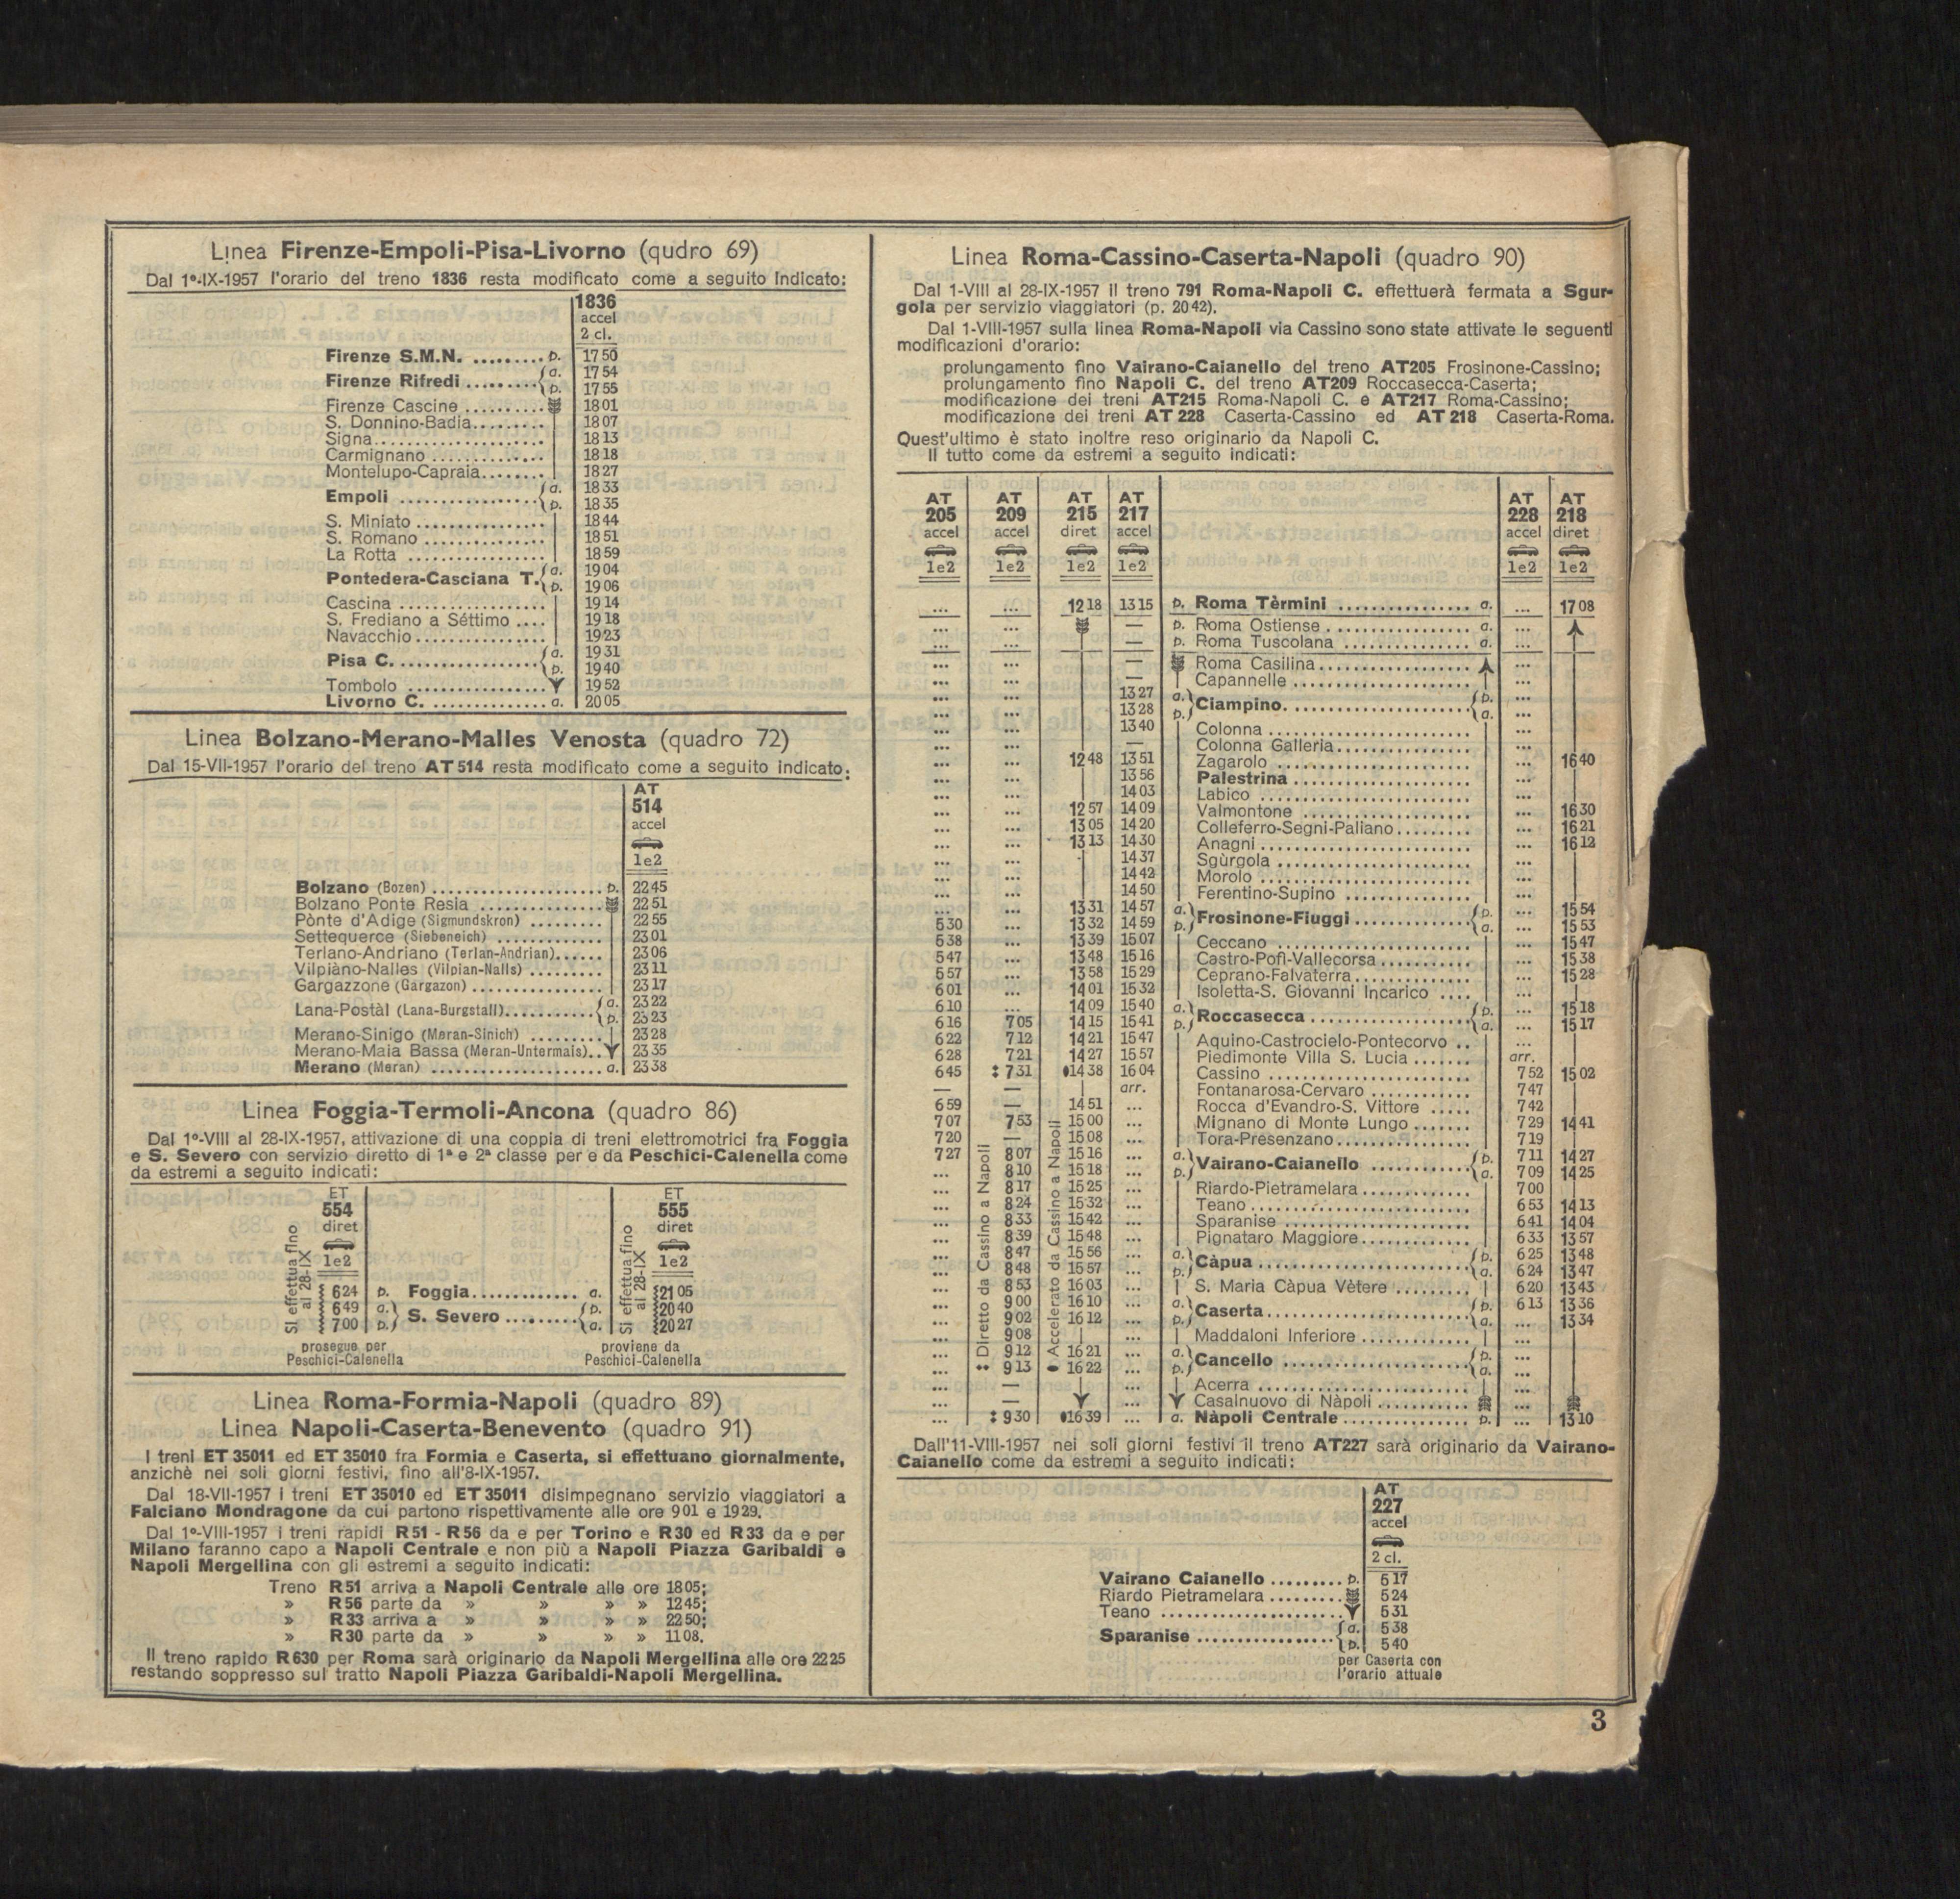 Linea Firenze-Empoli-Pisa-Livorno (qudro 69)
Dal 1º-IX-1957 l'orario del treno 1836 resta modificato come a seguito indicato:
1836
accel
2 cl.
Firenze S.M.N. ......... p. 17 50
Firenze Rifredi ......... a. 17 54
p. 17 55
Firenze Cascine .......... 18 01
S. Donnino-Badia......... 18 07
Signa..................... 18 13
Carmignano .............. 18 18
Montelupo-Capraia....... 18 27
Empoli ................. a. 18 33
p. 18 35
S. Miniato ................ 18 44
S. Romano ............... 18 51
La Rotta ................. 18 59
Pontedera-Casciana T. a. 19 04
p. 19 06
Cascina .................. 19 14
S. Frediano a Séttimo .... 19 18
Navacchio ................ 19 23
Pisa C. ................. a. 19 31
p. 19 40
Tombolo ................. 19 52
Livorno C. .............. a. 20 05
Linea Bolzano-Merano-Malles Venosta (quadro 72)
Dal 15-VII-1957 l'orario del treno AT 514 resta modificato come a seguito indicato:
AT
514
accel
1e2
Bolzano (Bozen) ..................... p. 22 45
Bolzano Ponte Resia ............... 22 51
Pònte d'Adige (Sigmundskron) ......... 22 55
Settequerce (Siebeneich) ............. 23 01
Terlano-Andriano (Terlan-Andrian)...... 23 06
Vilpiàno-Nalles (Vilpian-Nalls) ......... 23 11
Gargazzone (Gargazon) ................ 23 17
Lana-Postàl (Lana-Burgstall)........... a. 23 22
p. 23 23
Merano-Sinigo (Meran-Sinich) ......... 23 28
Merano-Maia Bassa (Meran-Untermais).. 23 35
Merano (Meran) ..................... a. 23 38
Linea Foggia-Termoli-Ancona (quadro 86)
Dal 1º-VIII al 28-IX-1957, attivazione di una coppia di treni elettromotrici fra Foggia
e S. Severo con servizio diretto di 1ª e 2ª classe per e da Peschici-Calenella come
da estremi a seguito indicati:
ET ET
554 555
diret diret
1e2 1e2
Si effettua fino al 28-IX
Si effettua fino al 28-IX
6 24 p. Foggia............ a. 21 05
6 49 a. S. Severo ......... p. 20 40
7 00 p. a. 20 27
prosegue per proviene da
Peschici-Calenella Peschici-Calenella
Linea Roma-Formia-Napoli (quadro 89)
Linea Napoli-Caserta-Benevento (quadro 91)
I treni ET 35011 ed ET 35010 fra Formia e Caserta, si effettuano giornalmente,
anzichè nei soli giorni festivi, fino all'8-IX-1957.
Dal 18-VII-1957 i treni ET 35010 ed ET 35011 disimpegnano servizio viaggiatori a
Falciano Mondragone da cui partono rispettivamente alle ore 9 01 e 19 29.
Dal 1º-VIII-1957 i treni rapidi R 51 - R 56 da e per Torino e R 30 ed R 33 da e per
Milano faranno capo a Napoli Centrale e non più a Napoli Piazza Garibaldi e
Napoli Mergellina con gli estremi a seguito indicati:
Treno R 51 arriva a Napoli Centrale alle ore 18 05;
» R 56 parte da » » » » 12 45;
» R 33 arriva a » » » » 22 50;
» R 30 parte da » » » » 11 08.
Il treno rapido R 630 per Roma sarà originario da Napoli Mergellina alle ore 22 25
restando soppresso sul tratto Napoli Piazza Garibaldi-Napoli Mergellina.
Linea Roma-Cassino-Caserta-Napoli (quadro 90)
Dal 1-VIII al 28-IX-1957 il treno 791 Roma-Napoli C. effettuerà fermata a Sgur-
gola per servizio viaggiatori (p. 20 42).
Dal 1-VIII-1957 sulla linea Roma-Napoli via Cassino sono state attivate le seguenti
modificazioni d'orario:
prolungamento fino Vairano-Caianello del treno AT205 Frosinone-Cassino;
prolungamento fino Napoli C. del treno AT209 Roccasecca-Caserta;
modificazione dei treni AT215 Roma-Napoli C. e AT217 Roma-Cassino;
modificazione dei treni AT 228 Caserta-Cassino ed AT 218 Caserta-Roma.
Quest'ultimo è stato inoltre reso originario da Napoli C.
Il tutto come da estremi a seguito indicati:
AT AT AT AT AT AT
205 209 215 217 228 218
accel accel diret accel accel diret
1e2 1e2 1e2 1e2 1e2 1e2
... ... 12 18 13 15 p. Roma Tèrmini ................ a. ... 17 08
... ... — p. Roma Ostiense .................. a. ...
... ... — p. Roma Tuscolana ................ a. ...
... ... — Roma Casilina................... ...
... ... — Capannelle ...................... ...
... ... 13 27 a. Ciampino........................ p. ...
... ... 13 28 p. a. ...
... ... 13 40 Colonna ......................... ...
... ... — Colonna Galleria................. ...
... ... 12 48 13 51 Zagarolo ........................ ... 16 40
... ... 13 56 Palestrina ...................... ...
... ... 14 03 Labico .......................... ...
... ... 12 57 14 09 Valmontone ...................... ... 16 30
... ... 13 05 14 20 Colleferro-Segni-Paliano......... ... 16 21
... ... 13 13 14 30 Anagni .......................... ... 16 12
... ... 14 37 Sgùrgola ........................ ...
... ... 14 42 Morolo .......................... ...
... ... 14 50 Ferentino-Supino ................ ...
... ... 13 31 14 57 a. Frosinone-Fiuggi .............. p. ... 15 54
5 30 ... 13 32 14 59 p. a. ... 15 53
5 38 ... 13 39 15 07 Ceccano ......................... ... 15 47
5 47 ... 13 48 15 16 Castro-Pofi-Vallecorsa........... ... 15 38
5 57 ... 13 58 15 29 Ceprano-Falvaterra............... ... 15 28
6 01 ... 14 01 15 32 Isoletta-S. Giovanni Incarico .... ...
6 10 ... 14 09 15 40 a. Roccasecca .................... p. ... 15 18
6 16 7 05 14 15 15 41 p. a. ... 15 17
6 22 7 12 14 21 15 47 Aquino-Castrocielo-Pontecorvo .. ...
6 28 7 21 14 27 15 57 Piedimonte Villa S. Lucia ....... arr.
6 45 7 31 14 38 16 04 Cassino ......................... 7 52 15 02
— — arr. Fontanarosa-Cervaro ............. 7 47
6 59 — 14 51 ... Rocca d'Evandro-S. Vittore ..... 7 42
7 07 7 53 15 00 ... Mignano di Monte Lungo ....... 7 29 14 41
7 20 — 15 08 ... Tora-Presenzano................. 7 19
7 27 8 07 15 16 ... a. Vairano-Caianello ............ p. 7 11 14 27
... 8 10 15 18 ... p. a. 7 09 14 25
... 8 17 15 25 ... Riardo-Pietramelara............. 7 00
... 8 24 15 32 ... Teano........................... 6 53 14 13
... 8 33 15 42 ... Sparanise ....................... 6 41 14 04
... 8 39 15 48 ... Pignataro Maggiore.............. 6 33 13 57
... 8 47 15 56 ... a. Càpua ......................... p. 6 25 13 48
... 8 48 15 57 ... p. a. 6 24 13 47
... 8 53 16 03 ... S. Maria Càpua Vètere ......... 6 20 13 43
... 9 00 16 10 ... a. Caserta........................ p. 6 13 13 36
... 9 02 16 12 ... p. a. ... 13 34
... 9 08 ... Maddaloni Inferiore.............. ...
... 9 12 16 21 ... a. Cancello ...................... p. ...
... 9 13 16 22 ... p. a. ...
... — ... Acerra .......................... ...
... — ... Casalnuovo di Nàpoli ........... ...
... 9 30 16 39 ... a. Nàpoli Centrale............... p. ... 13 10
Diretto da Cassino a Napoli
Accelerato da Cassino a Napoli
Dall'11-VIII-1957 nei soli giorni festivi il treno AT227 sarà originario da Vairano-
Caianello come da estremi a seguito indicati:
AT
227
accel
2 cl.
Vairano Caianello ......... p. 5 17
Riardo Pietramelara ......... 5 24
Teano ...................... 5 31
Sparanise ................. a. 5 38
p. 5 40
per Caserta con
l'orario attuale
3